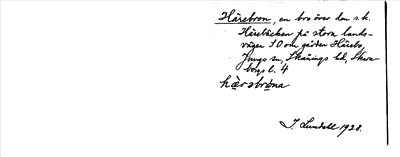 Härebron, en bro över den s.k.
Härebäcken på stora lands-
vägen SO om gården Härebo,
Jungs sn, Skånings hd, Skara-
borgs l. 4
hä̀rəbróna
J. Lundell 1928.